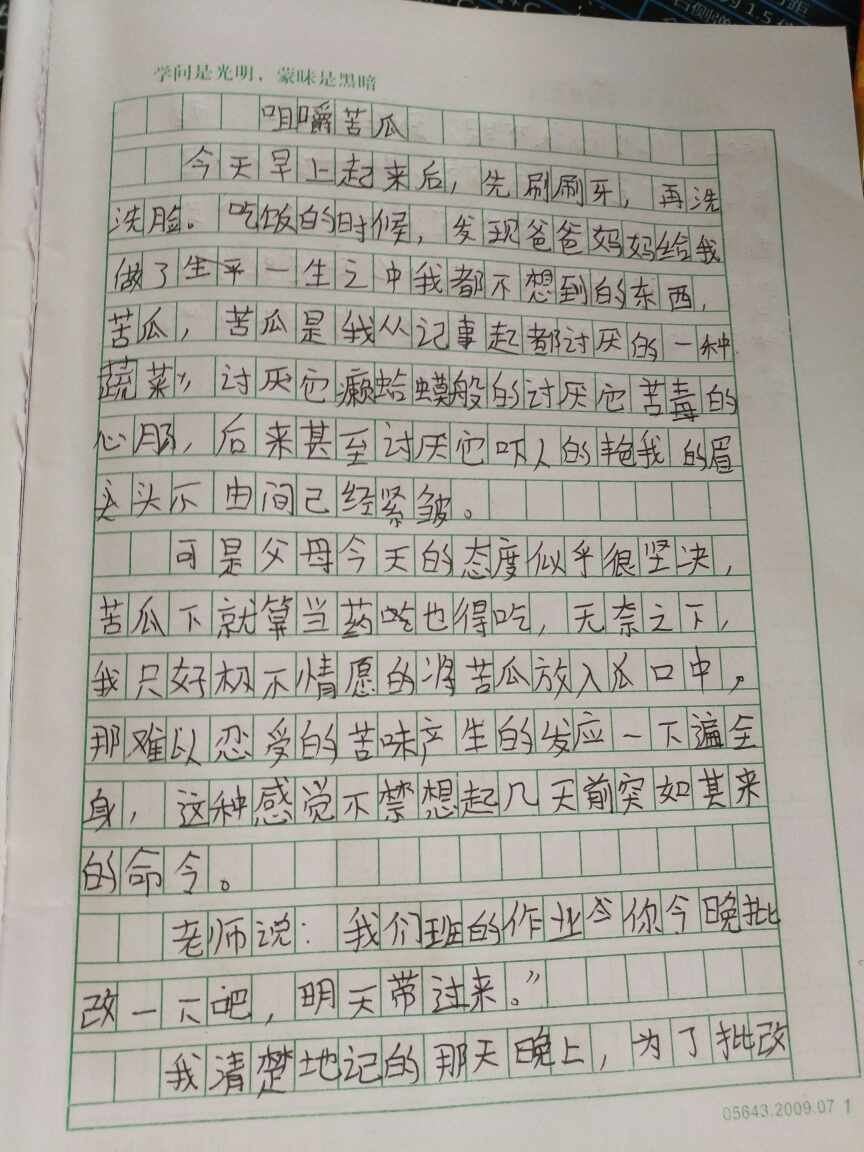 学问是光明，蒙昧是黑暗
咀嚼苦瓜
今天早上起来后，先刷刷牙，再洗
洗脸。吃饭的时候，发现爸爸妈妈给我
做了生平一生之中我都不想到的东西，
苦瓜，苦瓜是我从记事起都讨厌的一种
蔬菜，讨厌它癞蛤蟆般的讨厌它苦毒的
心肠，后来甚至讨厌它吓人的艳我的眉
头不由间己经紧皱。
可是父母今天的态度似乎很坚决，
苦瓜下就算当药吃也得吃，无奈之下，
我只好极不情愿的将苦瓜放入瓜口中，
那难以忍受的苦味产生的发应一下遍全
身，这种感觉不禁想起几天前突如其来
的命令。
老师说：我们班的作业令你今晚批
改一下吧，明天带过来。”
我清楚地记的那天晚上，为了批改
05643.2009.07 1